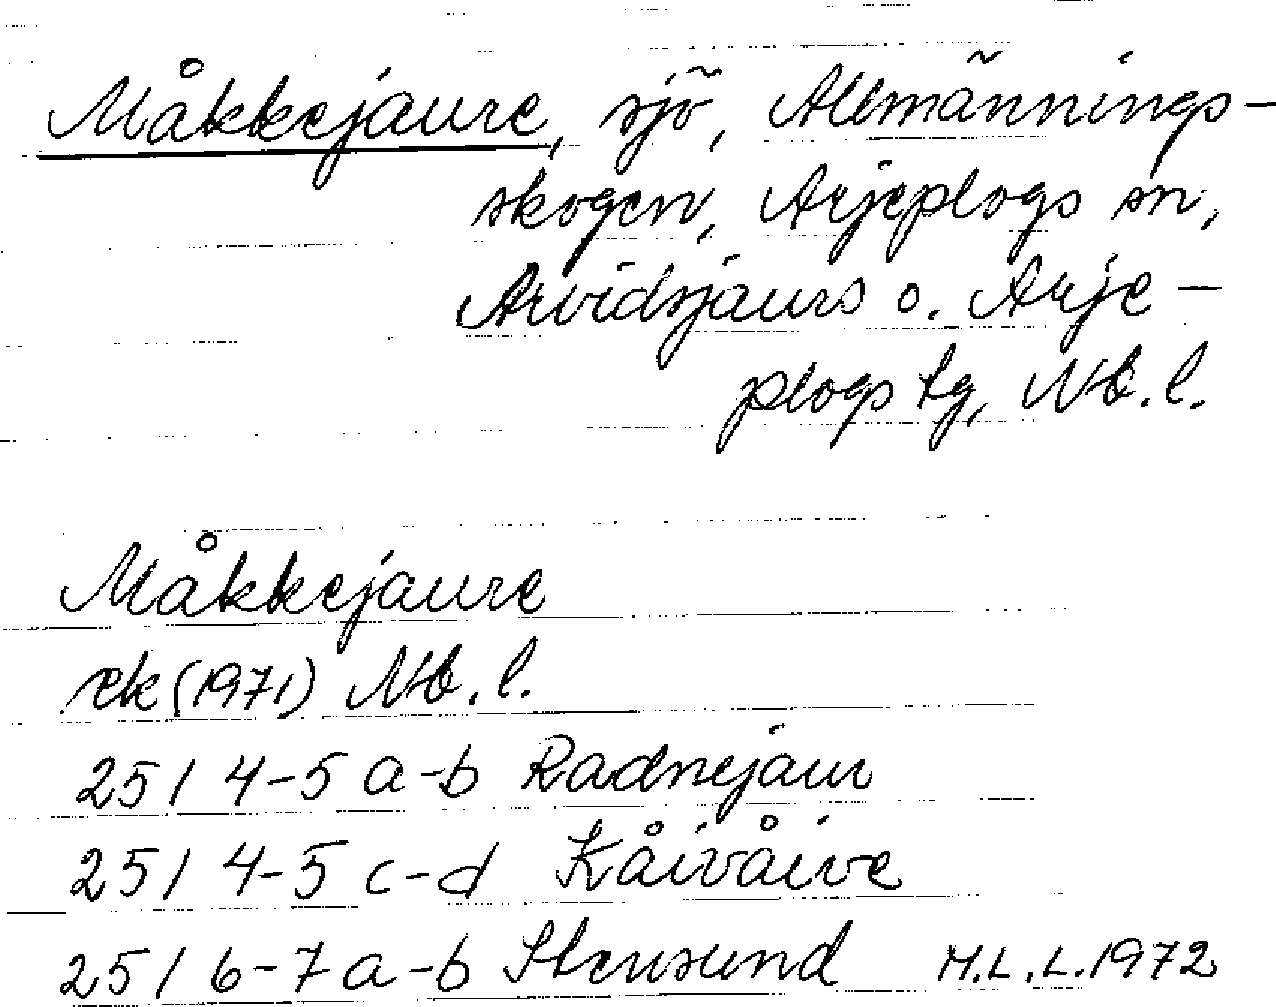 Måkkejaure, sjö, Allmännings-
skogen, Arjeplogs sn,
Arvidsjaurs o. Arje-
plogs tg, Nb. l.
Måkkejaure
ek (1971) Nb. l.
25 I 4-5 a-b Radnejaur
25 I 4-5 c-d Kåivåive
25 I 6-7 a-b Stensund M.L.L. 1972